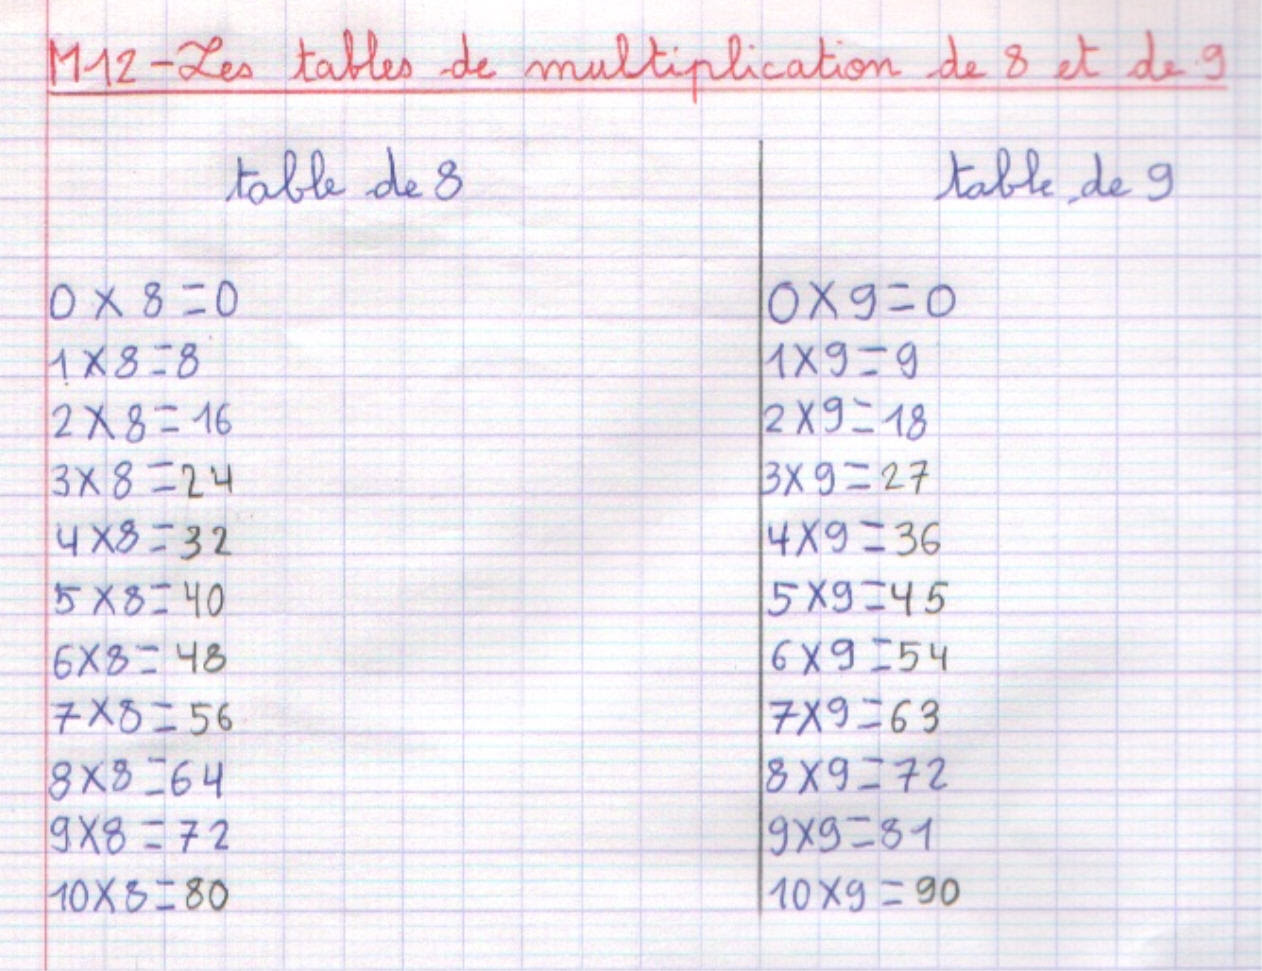 M12-Les tables de multiplication de 8 et de 9
table de 8
0 x 8 = 0
1 x 8 = 8
2 x 8 = 16
3 x 8 = 24
4 x 8 = 32
5 x 8 = 40
6 x 8 = 48
7 x 8 = 56
8 x 8 = 64
9 x 8 = 72
10 x 8 = 80
table de 9
0 x 9 = 0
1 x 9 = 9
2 x 9 = 18
3 x 9 = 27
4 x 9 = 36
5 x 9 = 45
6 x 9 = 54
7 x 9 = 63
8 x 9 = 72
9 x 9 = 81
10 x 9 = 90